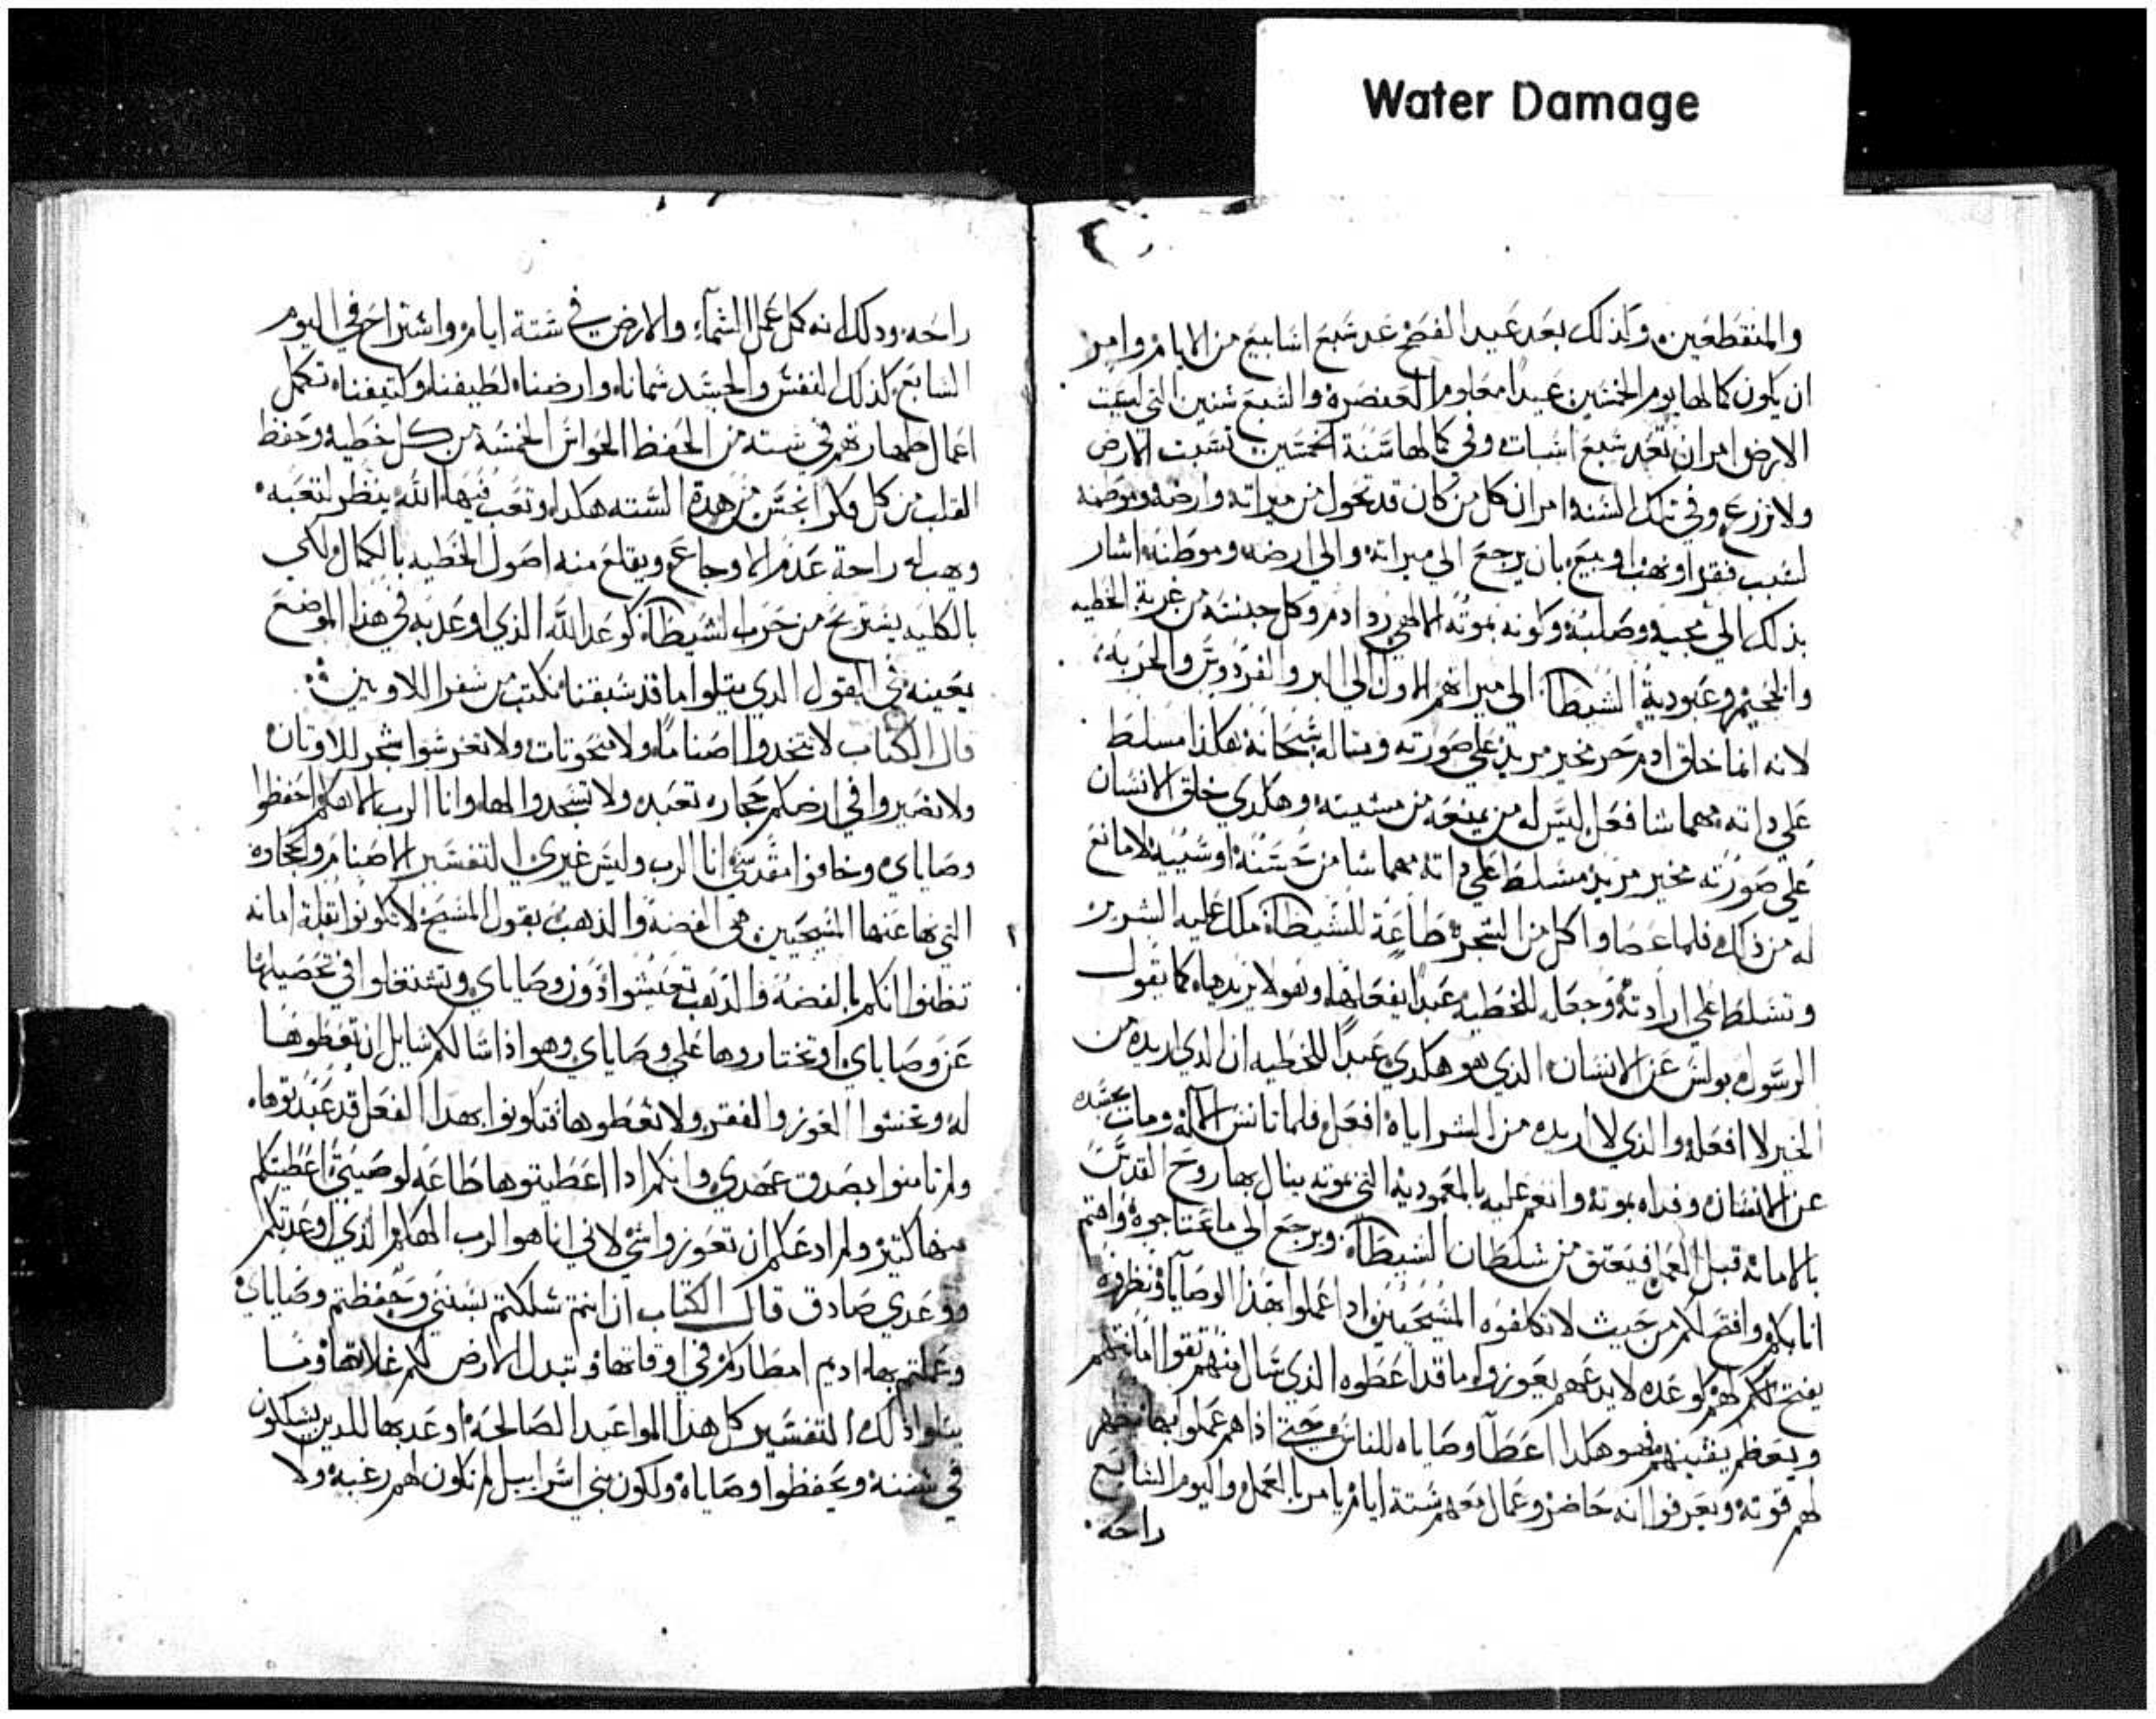 Water Damage
والمنقطعين وكذلك بعد عيد الفصح عد سبع اسابيع من الايام وامر
ان يكون كمالها يوم الخمسين عيدا معلوما العنصره والسبع سنين التي لبعت
الارض امر ان تعد سبع اسبات وفي كمالها سنة الخمسين تسبت الارض
ولا تزرع وفي تلك السنه امر ان كل من كان قد تحول من ميراته وارضه وموضعه
لسبب فقر او نهب او بيع بان يرجع الي ميراته والي ارضه وموطنه اشار
بذلك الي مجيه وصلبه وكونه بموته الالاهي رد ادم وكل جنسه من غربة الخطيه
والجحيم وعبودية الشيطان الي ميراتهم الاول الي البر والفردوس والحريه
لانه انما خلق ادم حر مخير مريد علي صورته ومتاله سبحانه هكذا مسلط
علي داته مهما شا فعل ليس له من يمنعه من مشيته وهكدي خلق الانسان
علي صورته مخير مريد مسلط علي داته مهما شا من حسنه او سييه لا مانع
له من ذلك فلما عصا واكل من الشجره طاعة للشيطان ملك عليه الشرير
وتسلط علي ارادته وجعله للخطيه عبدا يفعلها وهو لا يريدها كما يقول
الرسول بولس عن الانسان الذي هو هكدي عبدا للخطيه ان الدي اريده من
الخير لا افعله والذي لا اريده من الشر اياه افعل فلما تانس الاله ومات بجسده
عن الانسان وفداه بموته وانعم عليه بالمعموديه التي بموته ينال بها روح القدس
بالامانه قبل العمل فيعتق من سلطان الشيطان ويرجع الي ما عنتاجوه واهتم
انا بكم وافتح لكم من حيث لا تكلفوه المسيحيين اذا عملوا بهذا الوصايا ونظروه
يفتح لهم كوعده لا يدعهم يعوزوا ما قد اعطوه الذي سال منهم تقوا امانتهم
ويعظم يقينهم فهو هكدا اعطا وصاياه للناس حتي اذا هم عملوا بها
لهم قوته ويعرفوا انه حاضر وعمال معهم ستة ايام يامر بالعمل واليوم السابع
راحه
راحه ودلك انه كمل عمل السماء والارض في ستة ايام واستراح في اليوم
السابع كذلك النفس والجسد سماناه وارضناه لطيفناه وكتيفناه تكمل
اعمال طهارتهم في سته من الحفظ الحواس الخمسه من كل خطيه وحفظ
القلب من كل فكر انجس من هدة السته هكدا وتعب فيها الله ينظر لتعبه
وهب له راحة عدم الاوجاع ويقلع منه اصول الخطيه بالكمال ولكي
بالكليه يستريح من حرب الشيطان كوعد الله الذي اوعد به في هذا الموضع
بعينه في القول الدي يتلوا ما قد سبقنا نكتب من سفر اللاويين
قال الكتاب لا تتخدوا اصناما ولا منحوتات ولا تغرسوا شجر للاوتان
ولا تصيروا في ارضكم حجاره تعبد ولا تسجدوا لها وانا الرب الاهكم احفظوا
وصاياي وخافوا مقدسي انا الرب وليس غيري التفسير الاصنام والحجارة
التي نها عنها المسيحيين هي الفضه والدهب بقول المسيح لا تكونوا بقلة امانه
تظنوا انكم بالفضه والدهب تعيشوا دون وصاياي وتشتغلوا في تحصيلها
عن وصاياي او تختاروها علي وصاياي وهو اذا سالكم سايل ان تعطوها
له وتخشوا العوز والفقر ولا تعطوها فتكونوا بهدا الفعل قد عبدتوها
ولم تامنوا بصدق عهدي وانكم ادا اعطيتوها طاعه لوصيتي اعطيتكم
منها كتير ولم ادعكم ان تعوزوا شي لاني انا هو الرب الهكم الذي اوعدتكم
ووعدي صادق قال الكتاب ان انتم سلكتم بسنني وحفظتم وصاياي
وعملتم بها اديم امطاركم في اوقاتها وتبدل الارض لكم غلاتها وما
يتلوا ذلك التفسير كل هذا المواعيد الصالحة اوعد بها للدين يسلكون
في سننه ويحفظوا وصاياه ولكون بني اسراييل لم تكون لهم رغبه ولا